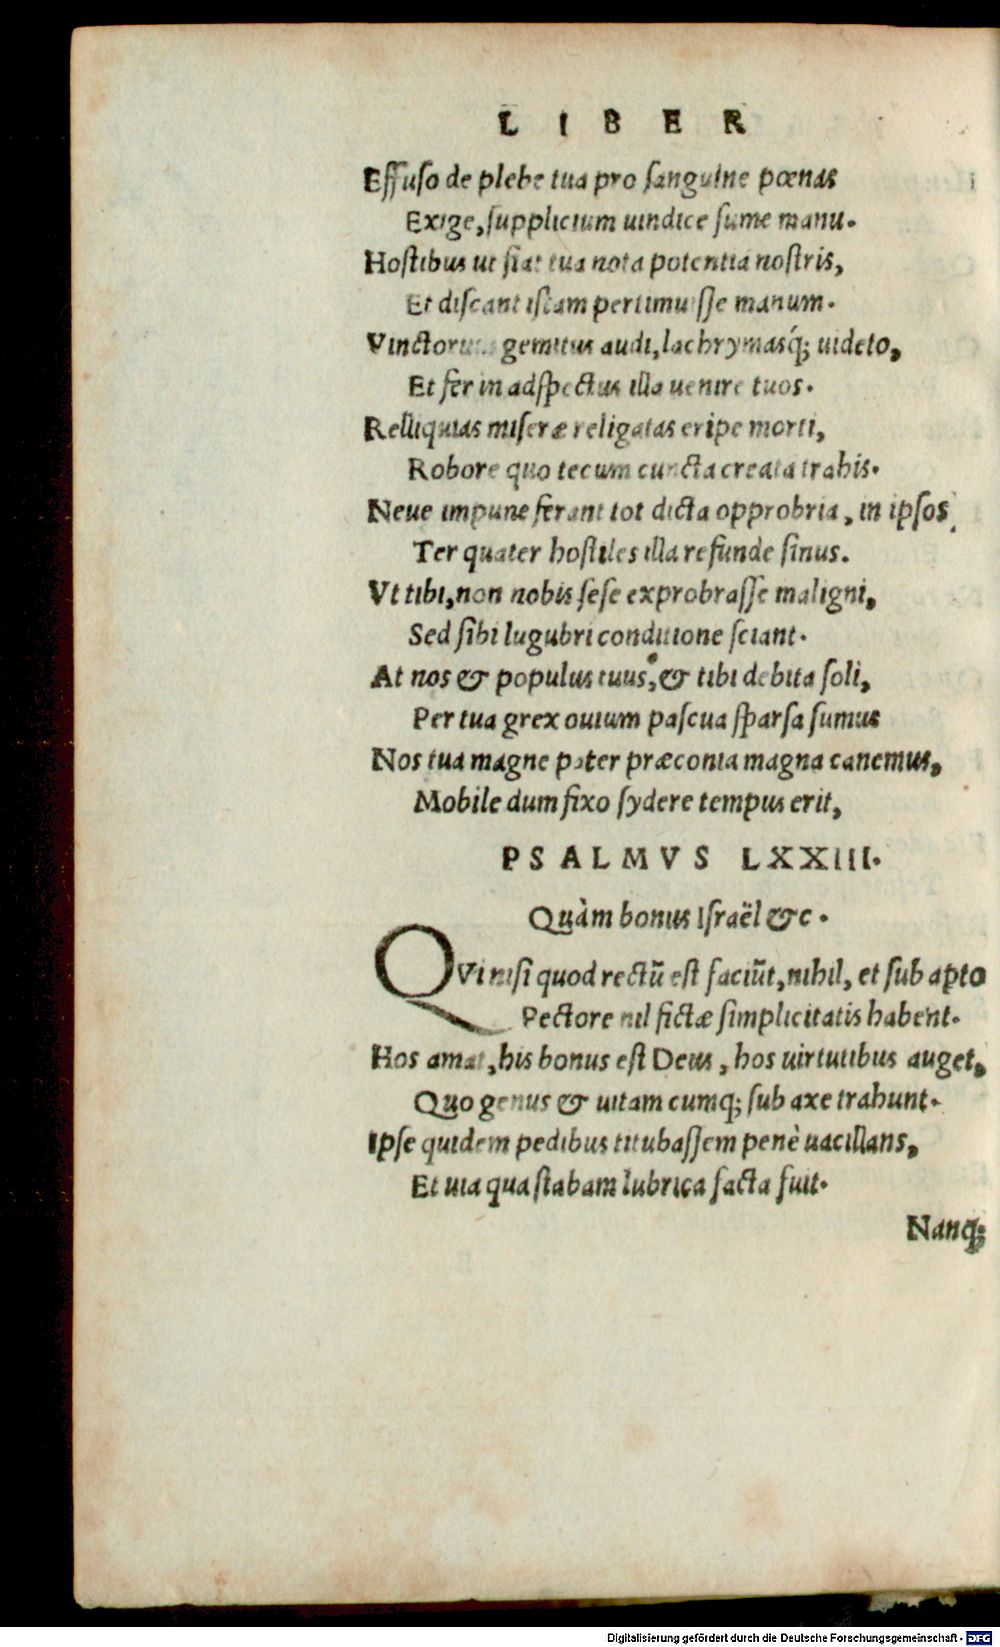 LIBER
Effuſo de plebe tua pro ſanguine pœnas
Exige, ſupplicium uindice ſume manu.
Hoſtibus ut fiat tua nota potentia noſtris,
Et diſcant iſtam pertimuiſſe manum.
Vinctorum gemitus audi, lachrymasq́; uideto,
Et fer in adſpectus illa uenire tuos.
Relliquias miſeræ religatas eripe morti,
Robore quo tecum cuncta creata trahis.
Neue impune ferant tot dicta opprobria, in ipſos,
Ter quater hoſtiles illa refunde ſinus.
Vt tibi, non nobis ſeſe exprobraſſe maligni,
Sed ſibi lugubri conditione ſciant.
At nos & populus tuus, & tibi debita ſoli,
Per tua grex ouium paſcua ſparſa ſumus
Nos tua magne pater præconia magna canemus,
Mobile dum fixo ſydere tempus erit,
PSALMVS LXXIII.
Quàm bonus Iſraël &c.
QVi niſi quod rectū eſt faciūt, nihil, et ſub apto
Pectore nil fictæ ſimplicitatis habent.
Hos amat, his bonus eſt Deus, hos uirtutibus auget,
Quo genus & uitam cumq; ſub axe trahunt.
Ipſe quidem pedibus titubaſſem penè uacillans,
Et uia qua ſtabam lubrica facta fuit.
Nanq;
Digitalisierung gefördert durch die Deutsche Forschungsgemeinschaft - DFG